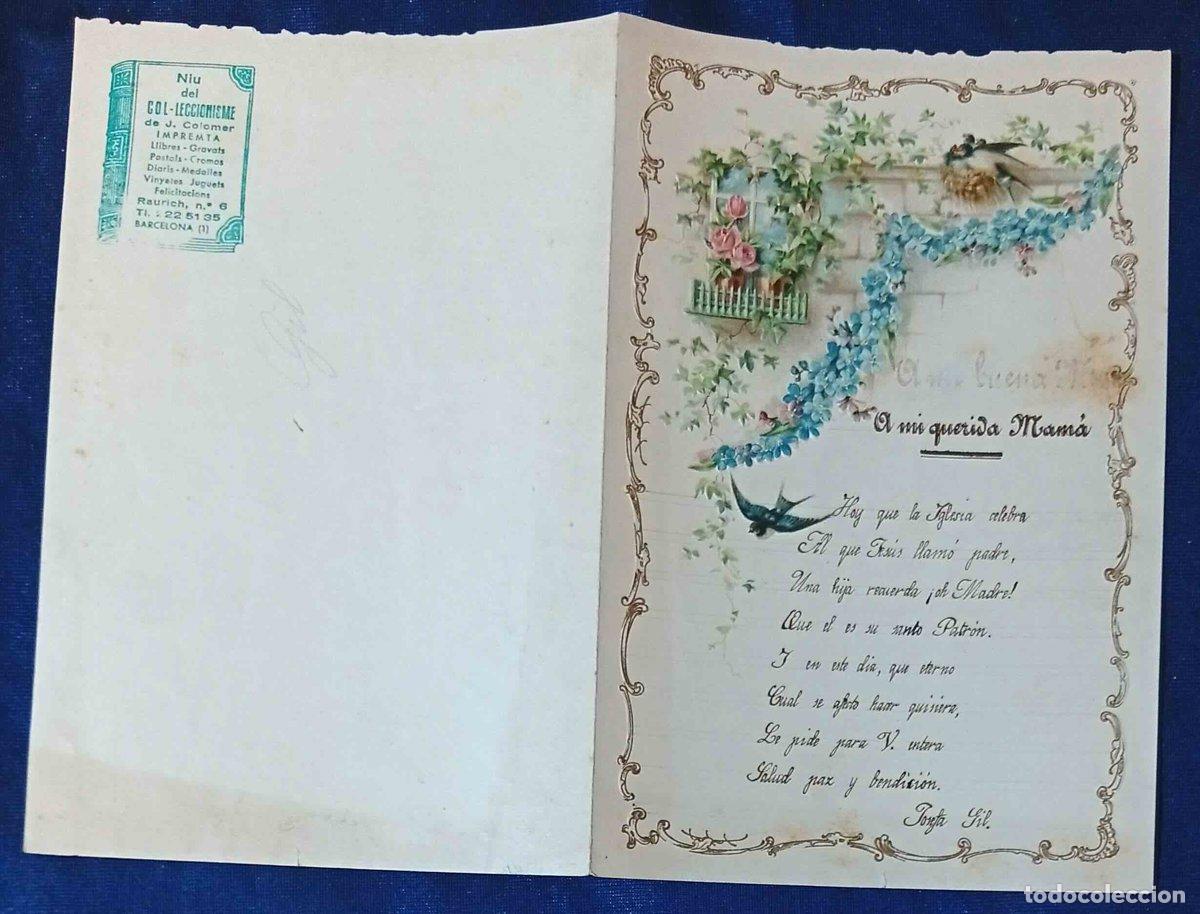 Niu
del
COL-LECCIONISME
de J. Colomer
IMPREMTA
Llibres - Gravats
Postals - Cromos
Diaris - Medalles
Vinyetes Juguets
Felicitacions
Raurich, n.º 6
Tl. 222 51 35
BARCELONA (1)
A mi buena
A mi querida Mamá
Hoy que la Iglesia celebra
Al que Jesús llamó padre,
Una hija recuerda ¡oh Madre!
Que el es su santo Patrón.
I en este dia, que eterno
Cual se afecto hacer quisiera,
Le pide para V. entera
Salud paz y bendición.
Gil.
todocoleccion